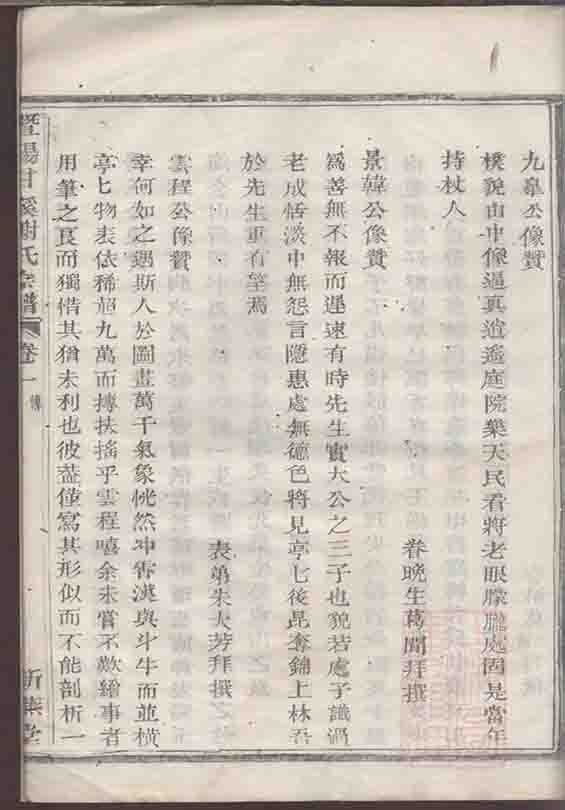 九皋公像贊
樸貌由中像逼真逍遙庭院樂天民看將老眼朦朧處固是當年
持杖人
眷晚生葛聞拜撰
景韓公像贊
為善無不報而遲速有時先生實大公之三子也貌若處子識過
老成恬淡中無怨言隱惠處無德色將見亭七後昆奪錦上林吾
於先生重有望焉
表弟朱大芳拜撰
雲程公像贊
幸何如之遇斯人於圖畫萬千氣象恍然冲霄漢與斗牛而並橫
亭七物表依稀韶九萬而摶扶搖乎雲程嘻余未嘗不歎繪事者
用筆之良而獨惜其猶未利也彼蓋僅寫其形似而不能剖析一
暨陽甘溪謝氏宗譜
卷一
傳